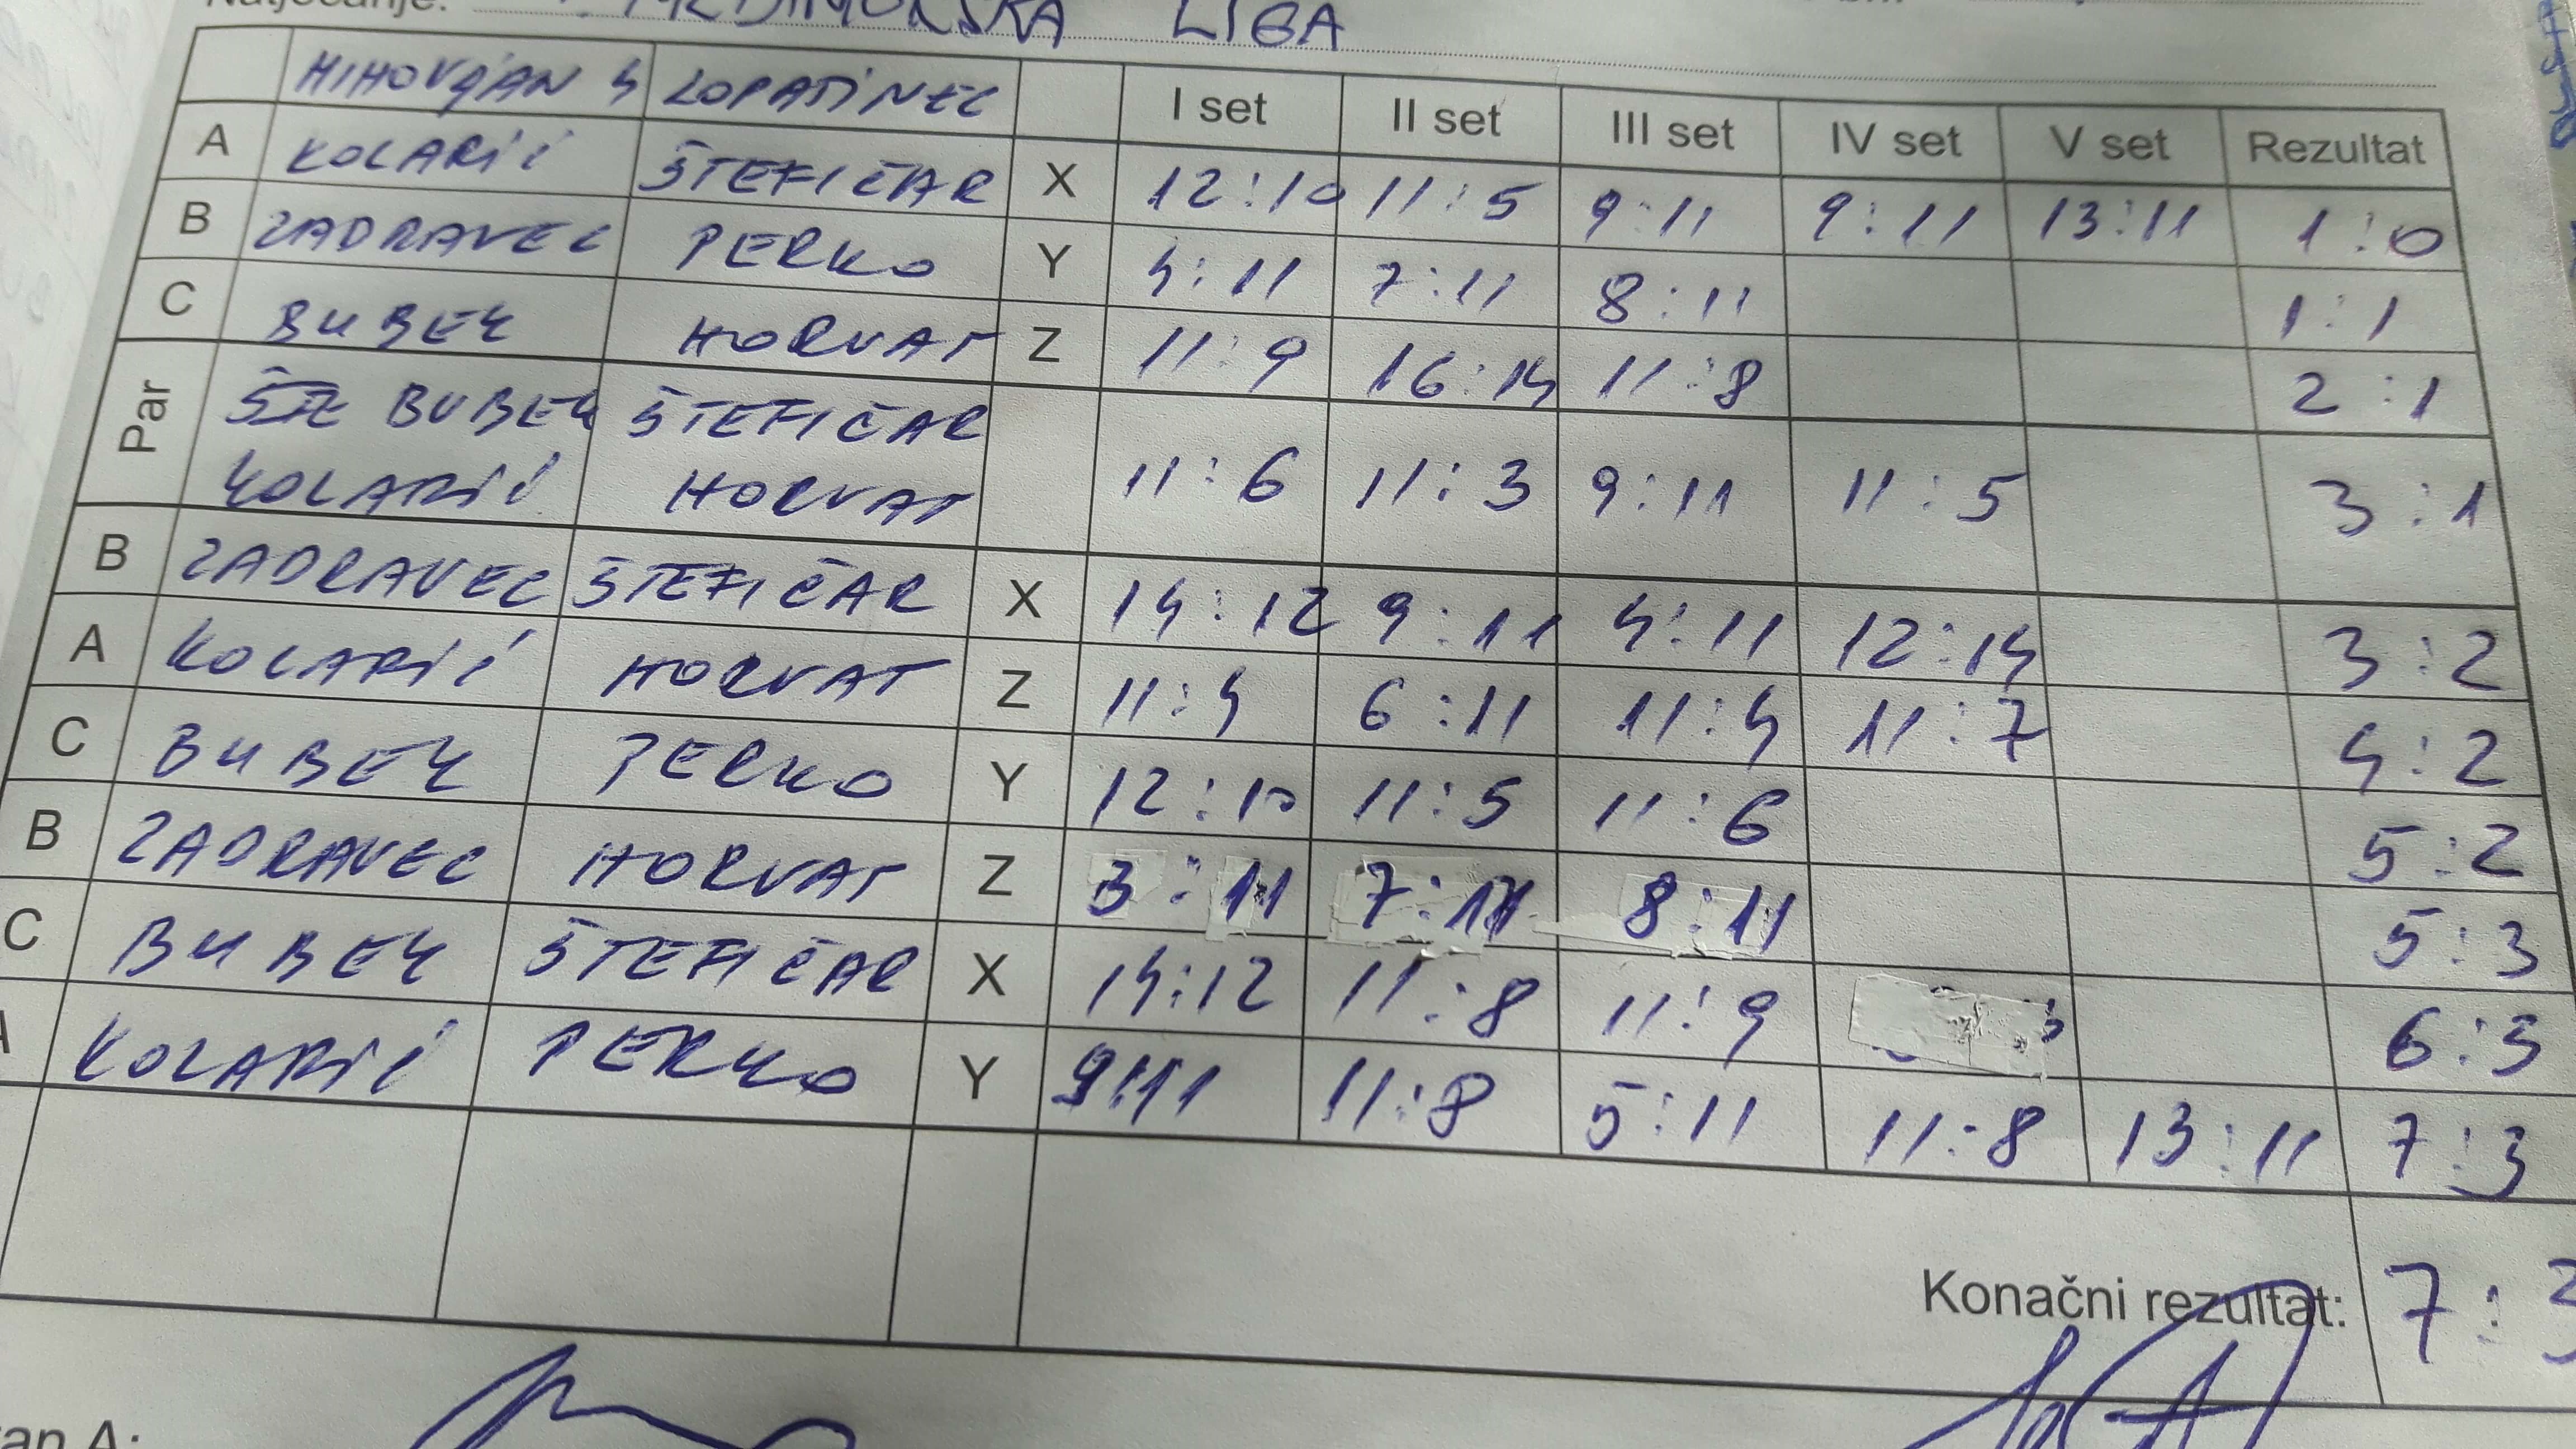 Natjecanje: LIGA
MIHOVLJAN 4 LOPATINEC I set II set III set IV set V set Rezultat
A KOLARIĆ ŠTEFIČAR X 12:10 11:5 9:11 9:11 13:11 1:0
B ZADRAVEC PERKO Y 4:11 7:11 8:11 1:1
C BUBEK HORVAT Z 11:9 16:14 11:8 2:1
Par BUBEK ŠTEFIČAR
KOLARIĆ HORVAT 11:6 11:3 9:11 11:5 3:1
B ZADRAVEC ŠTEFIČAR X 14:12 9:11 4:11 12:14 3:2
A KOLARIĆ HORVAT Z 11:4 6:11 11:4 11:7 4:2
C BUBEK PERKO Y 12:10 11:5 11:6 5:2
B ZADRAVEC HORVAT Z 3:11 7:11 8:11 5:3
C BUBEK ŠTEFIČAR X 14:12 11:8 11:9 6:3
A KOLARIĆ PERKO Y 9:11 11:8 5:11 11:8 13:11 7:3
Konačni rezultat: 7:3
A: